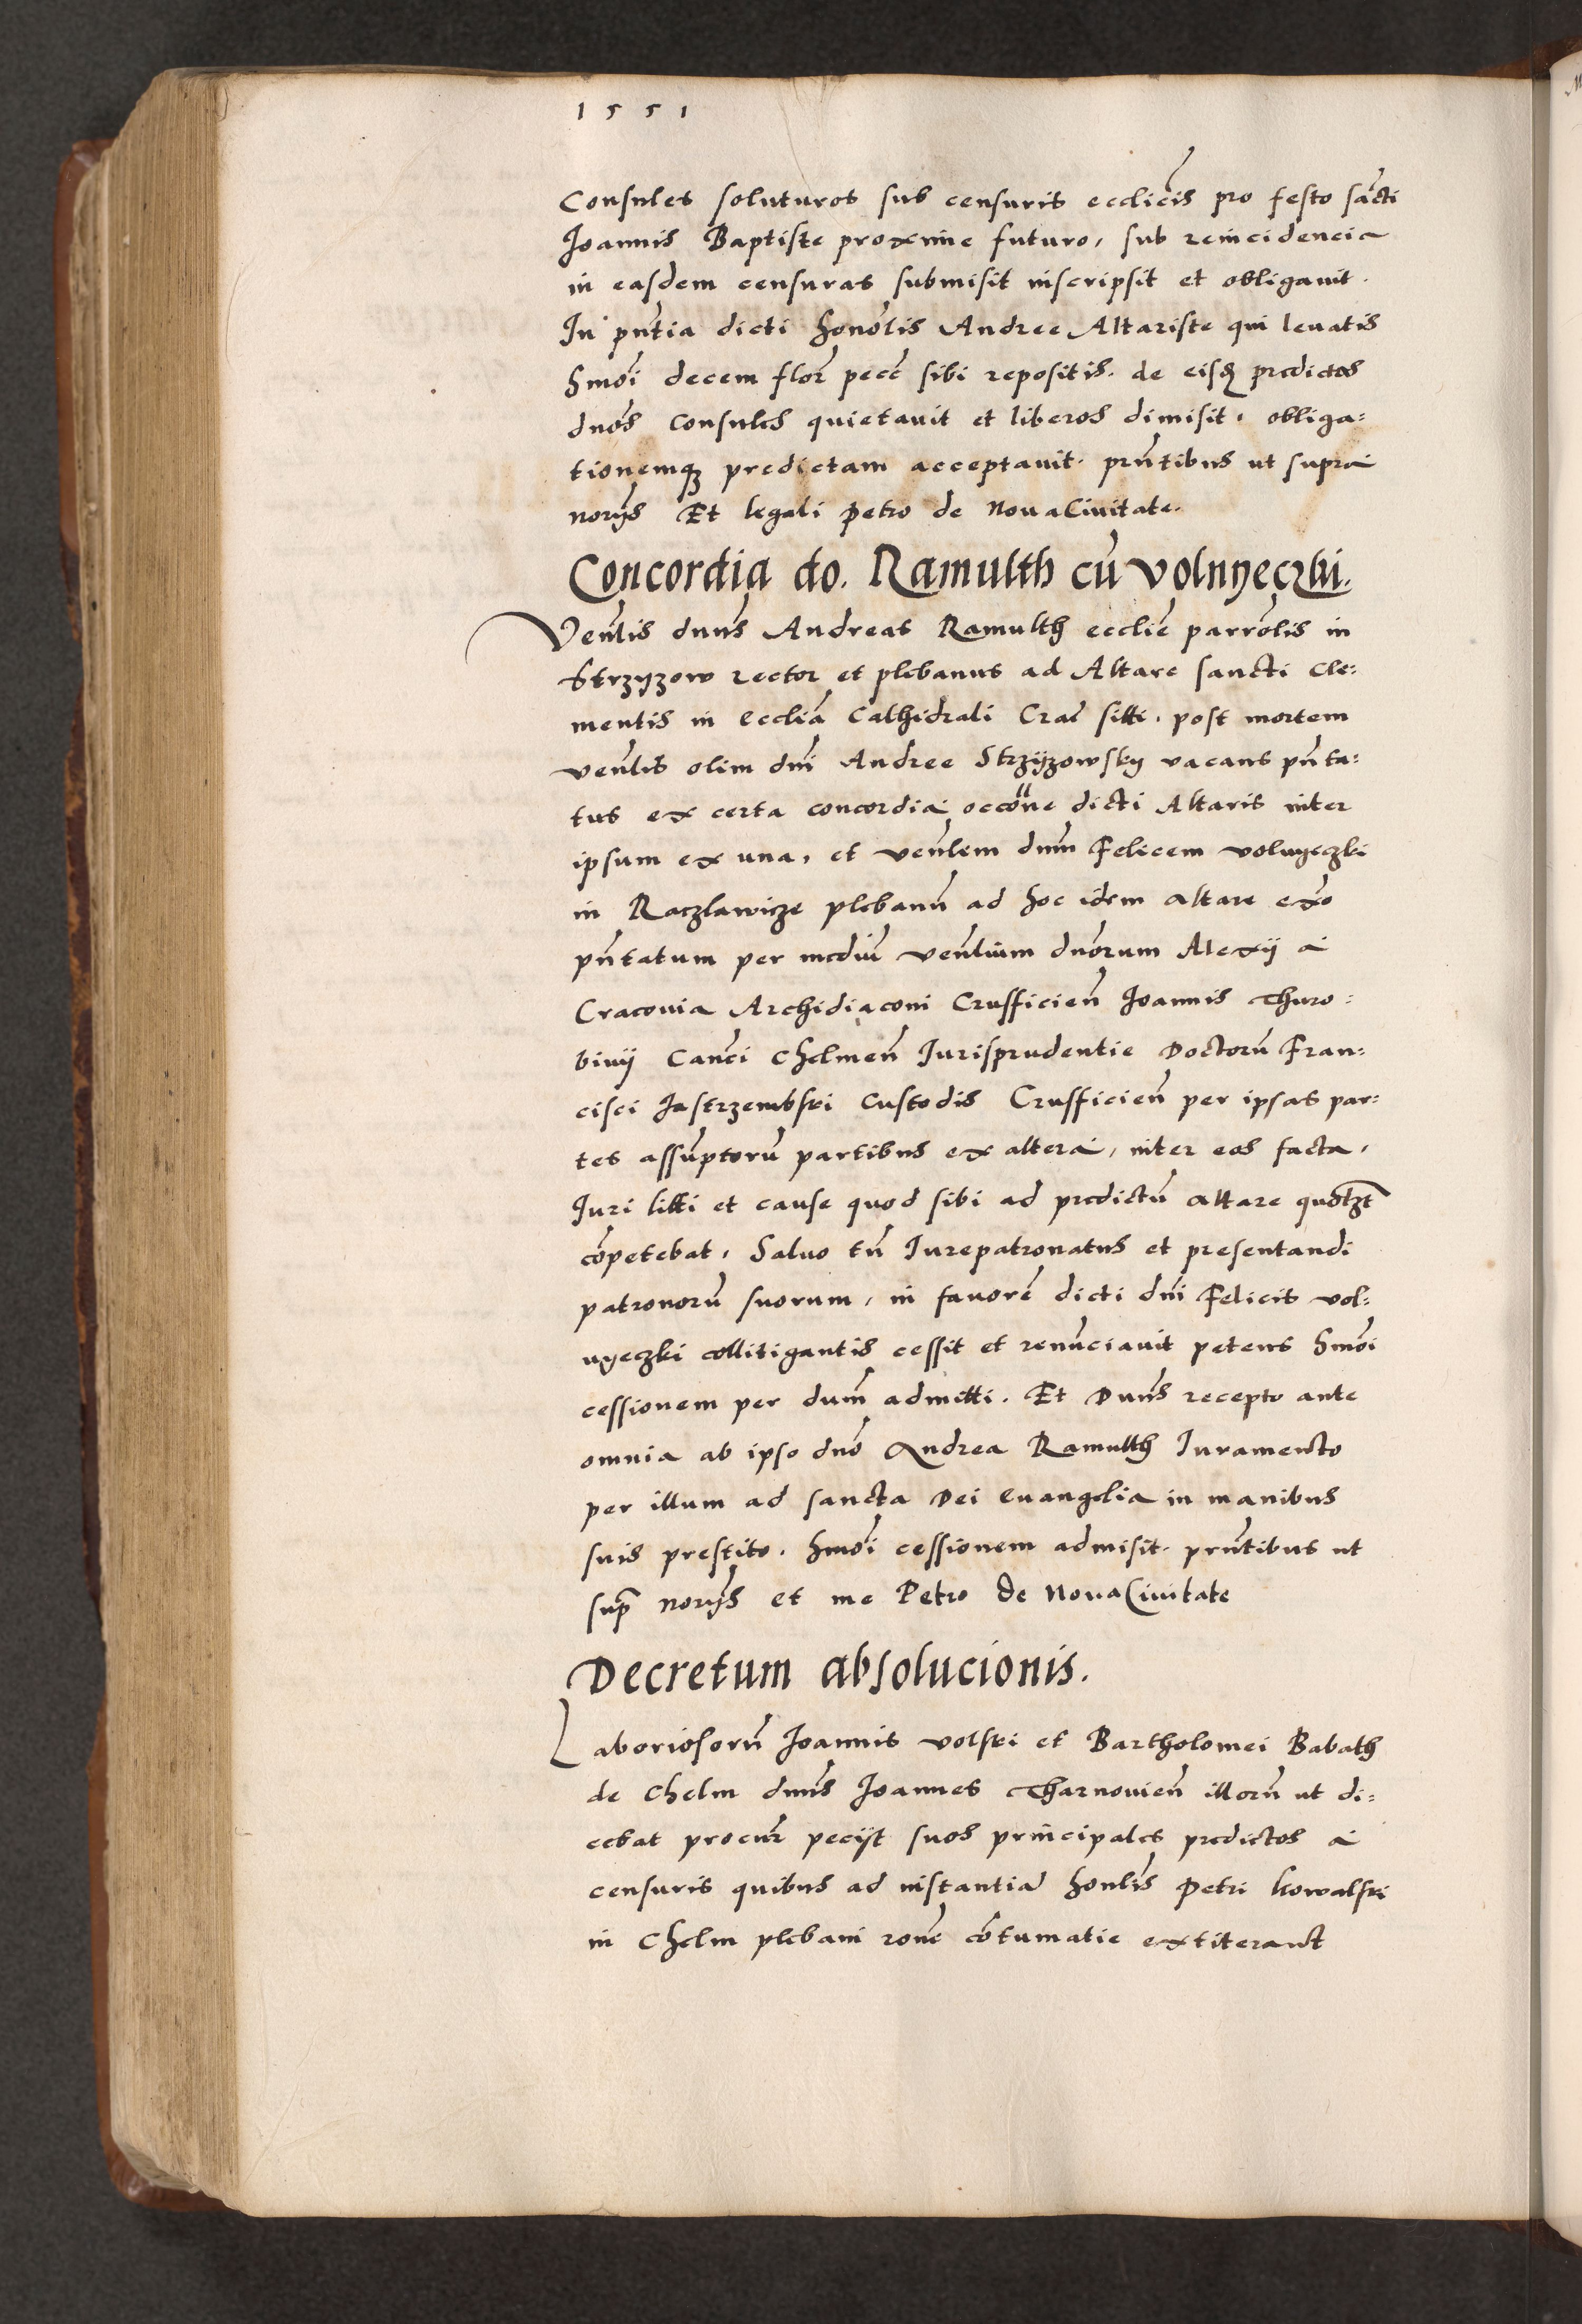 1551
Consules soluturos sub censuris ecclicis pro festo sancti
Joannis Baptiste proxime futuro, sub reincidencia
in easdem censuras submisit inscripsit et obligauit.
In pntia dicti honolis Andree Altariste qui leuatis
hmoi decem flor pecc sibi repositis. de eisq predictos
dnos Consules quietauit et liberos dimisit, obliga:
tionemq predictam acceptauit. pntibus ut supra
norijs Et legali Petro de NouaCiuitate.
Concordia do. Ramulth cu Volnyeczki.
Venlis dnus Andreas Ramulth ecclie parrolis in
Strzyzow rector et plebanus ad Altare sancti Cle:
mentis in Ecclia Cathidrali Crac siti, post mortem
venlis olim dni Andree Strzyzowsky vacans pnta:
tus ex certa concordia occone dicti Altaris inter
ipsum ex una, et venlem dnm Felicem Volnyeczki
in Raczlawicze plebanu ad hoc idem altare exo
pntatum per mediu venlium dnorum Alexij a
Cracouia Archidiaconi Crusficien Joannis Thuro:
binij Canci Chelmen Jurisprudentie Doctoru Fran:
cisci Jastrzembski Custodis Crusficien per ipsas par:
tes assumptoru partibus ex altera, inter eos facta,
Juri liti et cause quod sibi ad predictu altare quotzt
competebat, Saluo tn Jurepatronatus et presentandi
patronoru suorum, in fauore dicti dni Felicis Vol:
nyeczki collitigantis cessit et renunciauit petens hmoi
cessionem per dnm admitti. Et Dnus recepto ante
omnia ab ipso dno Andrea Ramulth Juramento
per illum ad sancta Dei Euangelia in manibus
suis prestito. hmoi cessionem admisit. pntibus ut
sup norijs et me Petro de NouaCiuitate
Decretum absolucionis.
Laboriosoru Joannis Volski et Bartholomei Babath
de Chelm dnus Joannes Tharnouien illoru ut di:
cebat procur pecijt suos principales predictos a
censuris quibus ad instantia honlis Petri Kowalski
in Chelm plebani rone contumatie extiterant